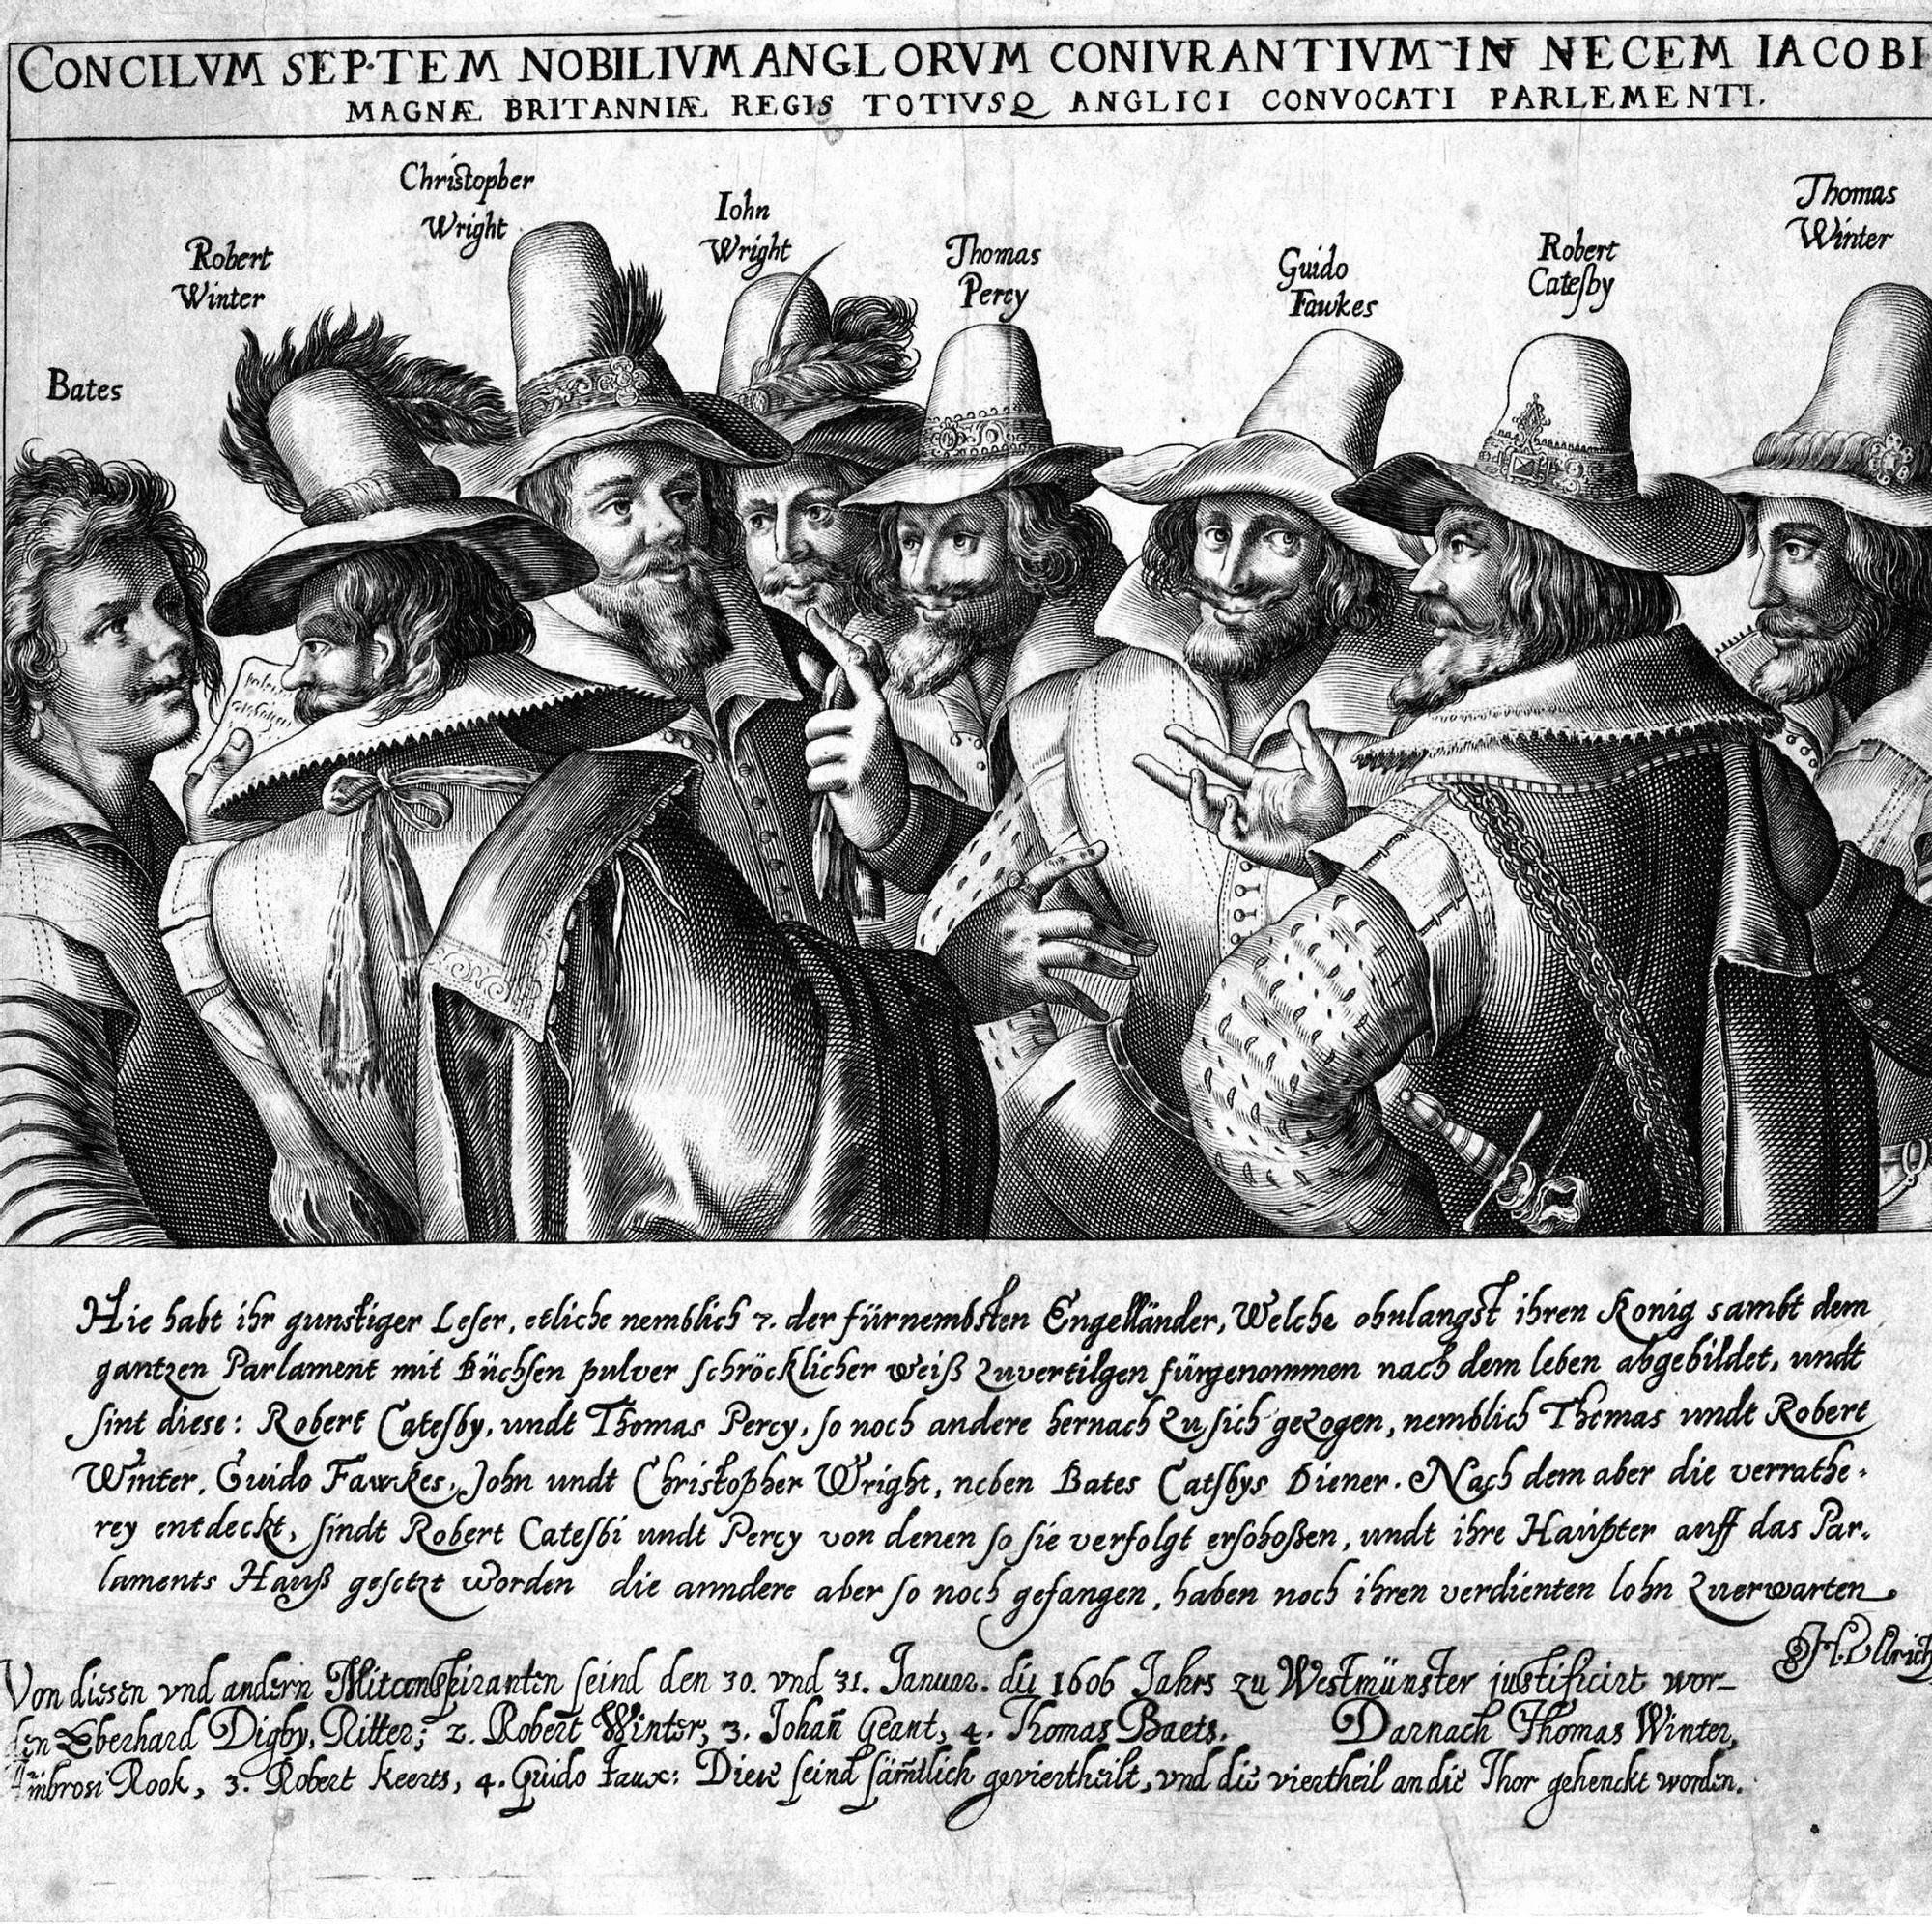 CONCILVM SEPTEM NOBILIVM ANGLORVM CONIVRANTIVM IN NECEM IACOBI
MAGNÆ BRITANNIÆ REGIS TOTIVSQ ANGLICI CONVOCATI PARLEMENTI.
Bates
Robert
Winter
Christopher
Wright
Iohn
Wright
Thomas
Percy
Guido
Fawkes
Robert
Cateſby
Thomas
Winter
Hie habt ihr gunstiger Leſer, etliche nemblich 7. der fürnembsten Engelländer, Welche ohnlangst ihren Konig sambt dem
gantzen Parlament mit Büchſen pulver ſchröcklicher weiß zuvertilgen fürgenommen nach dem leben abgebildet, undt
ſint diese: Robert Cateſby, undt Thomas Percy, ſo noch andere hernach zu ſich gezogen, nemblich Thomas undt Robert
Winter, Guido Fawkes, John undt Christopher Wright, neben Bates Catſbys Diener. Nach dem aber die verrathe-
rey entdeckt, ſindt Robert Cateſbi undt Percy von denen ſo ſie verfolgt erſchoßen, undt ihre Haüpter auff das Par-
laments Hauß geſetzt worden die anndere aber ſo noch gefangen, haben noch ihren verdienten lohn zuerwarten
H. Ullrich
Von diesen vnd andern Mitconſpiranten ſeind den 30. vnd 31. Januar. diß 1606 Jahrs zu Westmünster justificirt wor-
den Eberhard Digby, Ritter; 2. Robert Winter, 3. Johan̄ Geant, 4. Thomas Baets. Darnach Thomas Winter,
Ambrosi Rook, 3. Robert Keerts, 4. Guido Faux: Diese ſeind ſäm̄tlich geviertheilt, vnd die viertheil an die Thor gehenckt worden.